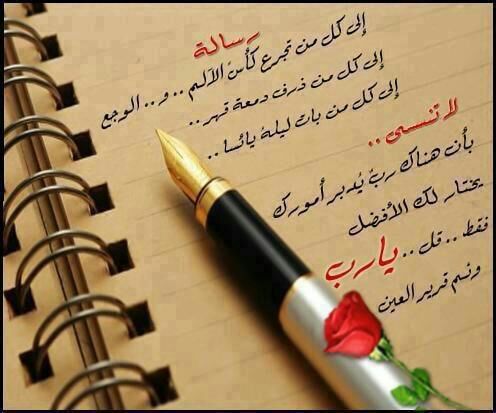 رسالة
إلى كل من تجرع كأس الآلم .. و .. الوجع
إلى كل من ذرف دمعة قهر ..
إلى كل من بات ليلهُ يائسا ..
لا تنسى ..
بأن هناك ربٌ يُدبر أمورك
يختار لك الأفضل
فقط .. قل .. يارب
ونم قرير العين